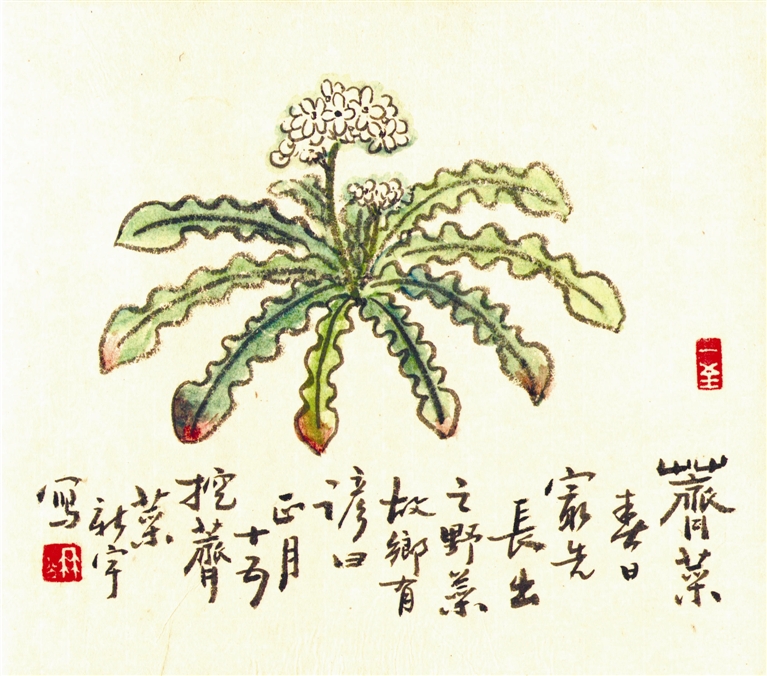 薺菜
春日
最先
長出
之野菜
故鄉有
諺曰
正月
十五
挖薺
菜
新宇
寫